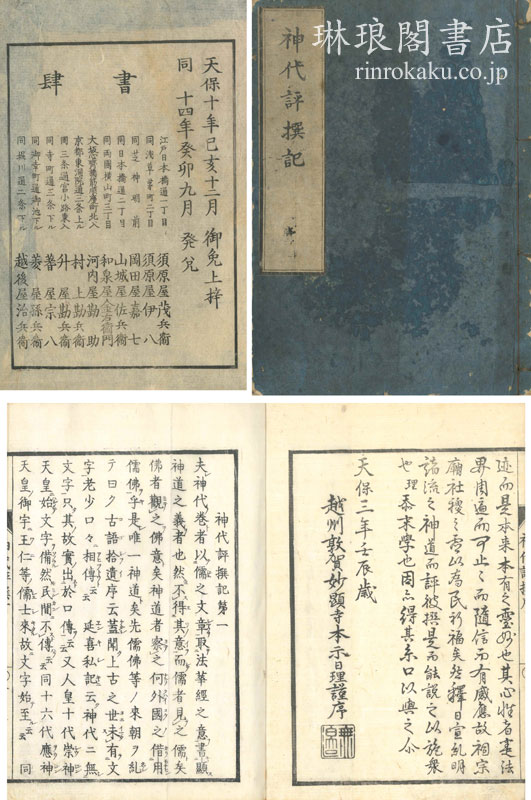 琳琅閣書店
rinrokaku.co.jp
神代評撰記
天保十年己亥十二月 御免上梓
同 十四年癸卯九月 發兌
書肆
江戸日本橋通一丁目 須原屋茂兵衞
同浅草茅町二丁目 須原屋伊八
同芝神明前 岡田屋嘉七
同日本橋通二丁目 山城屋佐兵衞
同両國横山町三丁目 和泉屋金右衞門
大坂心斎橋筋順慶町北入 河内屋勘助
京都東洞院通三条上ル 村上勘兵衞
同三条通富小路東入 升屋勘兵衞
同寺町通三条下ル 屋宗八
同御幸町通御池下ル 菱屋孫兵衞
同堀川通二条下ル 越後屋治兵衞
迹而是本来本有之靈妙也其心性者法
界周遍而可止之而隨信而有感應故宗
廟社稷之霊以為民祈福矣釋日宣明
諸流之神道而評破撰是而能說之以施衆
也理忝末學也因得其糸口以與之尒
天保三年壬辰歳
越州敦賀妙顯寺本示日理謹序
神代評撰記第一
夫神代巻者以儒之文章取法華經之意書顯
神道之義者也然不得其意而儒者見之儒矣
佛者觀之佛意矣神道者察之何外國之借用
儒佛乎是唯一神道矣先儒佛等ノ来朝ヲ糺
テ曰ク古語拾遺序云蓋聞上古之世未有文
字老少口々相傳云 延喜私記云神代ニ無
文字只其故實出於口傳云又人皇十代崇神
天皇始文字備然民間不傳云同十六代應神
天皇御宇王仁等儒士来故文字始至云 同